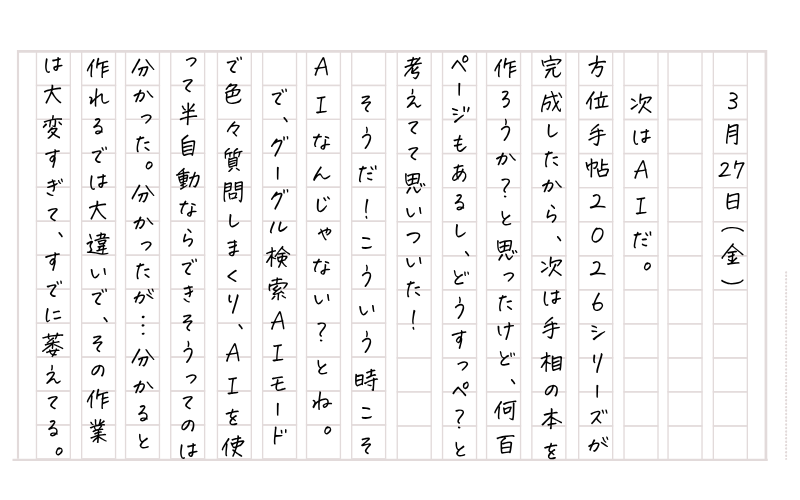 3月27日(金)
次はAIだ。
方位手帖2026シリーズが
完成したから、次は手相の本を
作ろうか?と思ったけど、何百
ページもあるし、どうすっぺ?と
考えてて思いついた!
そうだ!こういう時こそ
AIなんじゃない?とね。
で、グーグル検索AIモード
で色々質問しまくり、AIを使
って半自動ならできそうってのは
分かった。分かったが…分かると
作れるでは大違いで、その作業
は大変すぎて、すでに萎えてる。